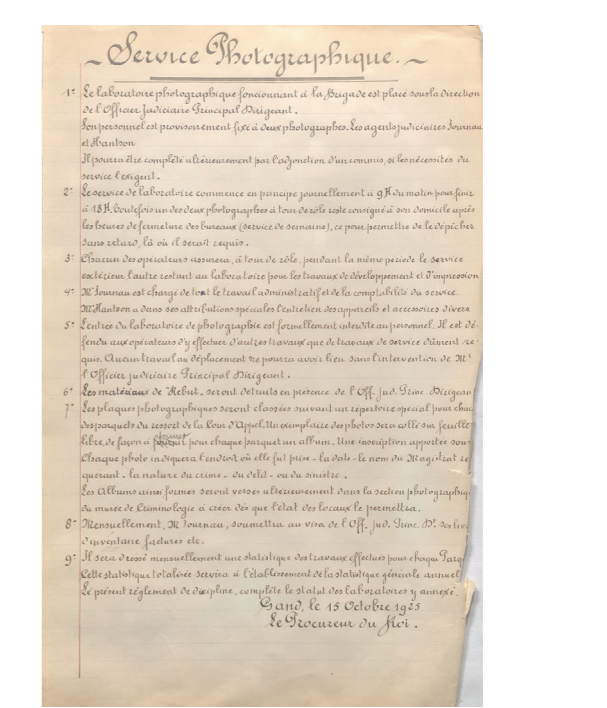 ~ Service Photographique. ~
1° Le laboratoire photographique foncionnant à la Brigade est placé sous la direction
de l'Officier Judiciaire Principal Dirigeant.
Son personnel est provisoirement fixé à deux photographes. Les agents judiciaires Journau
et Hantson
Il pourra être complété ultérieurement par l'adjonction d'un commis, si les nécessités du
service l'exigent.
2° Le service de laboratoire commence en principe journellement à 9 H du matin pour finir
à 18 H. Toutefois un des deux photographes à tour de rôle reste consigné à son domicile après
les heures de fermeture des bureaux (service de semaine), ce pour permettre de le dépêcher
sans retard, là où il serait requis.
3° Chacun des opérateurs assurera, à tour de rôle, pendant la même période le service
extérieur l'autre restant au laboratoire pour les travaux de développement et d'impression
4° Mr Journau est chargé de tout le travail administratif et de la comptabilité du service.
Mr Hantson a dans ses attributions spéciales l'entretien des appareils et accessoires divers
5° L'entrée du laboratoire de photographie est formellement interdite au personnel. Il est dé-
fendu aux opérateurs d'y effectuer d'autres travaux que de travaux de service dûment re-
quis. Aucun travail ou déplacement ne pourra avoir lieu sans l'intervention de Mr
l'Officier judiciaire Principal Dirigeant.
6° Les matériaux de Rebut, seront détruits en présence de l'Off. Jud. Princ. Dirigean
7° Les plaques photographiques seront classées suivant un répertoire spécial pour chac
des parquets du ressort de la Cour d'Appel. Un exemplaire des photos sera collé sur feuille
libre, de façon à former pour chaque parquet un album. Une inscription apportée sous
Chaque photo indiquera l'endroit où elle fut prise - la date - le nom du Magistrat re
quérant - la nature du crime - du délit - ou du sinistre.
Les Albums ainsi formés seront versés ultérieurement dans la section photographiq
du musée de Criminologie à créer dès que l'état des locaux le permettra.
8° Mensuellement, M Journau, soumettra au visa de l'Off. Jud. Princ. Dt. les liv
d'inventaire factures etc.
9° Il sera dressé mensuellement une statistique des travaux effectués pour chaque Parq
Cette statistique totalisée servira à l'établissement de la statistique générale annuel
Le présent règlement de discipline, complète le statut des laboratoires y annexé.
Gand, le 15 Octobre 1925
Le Procureur du Roi.